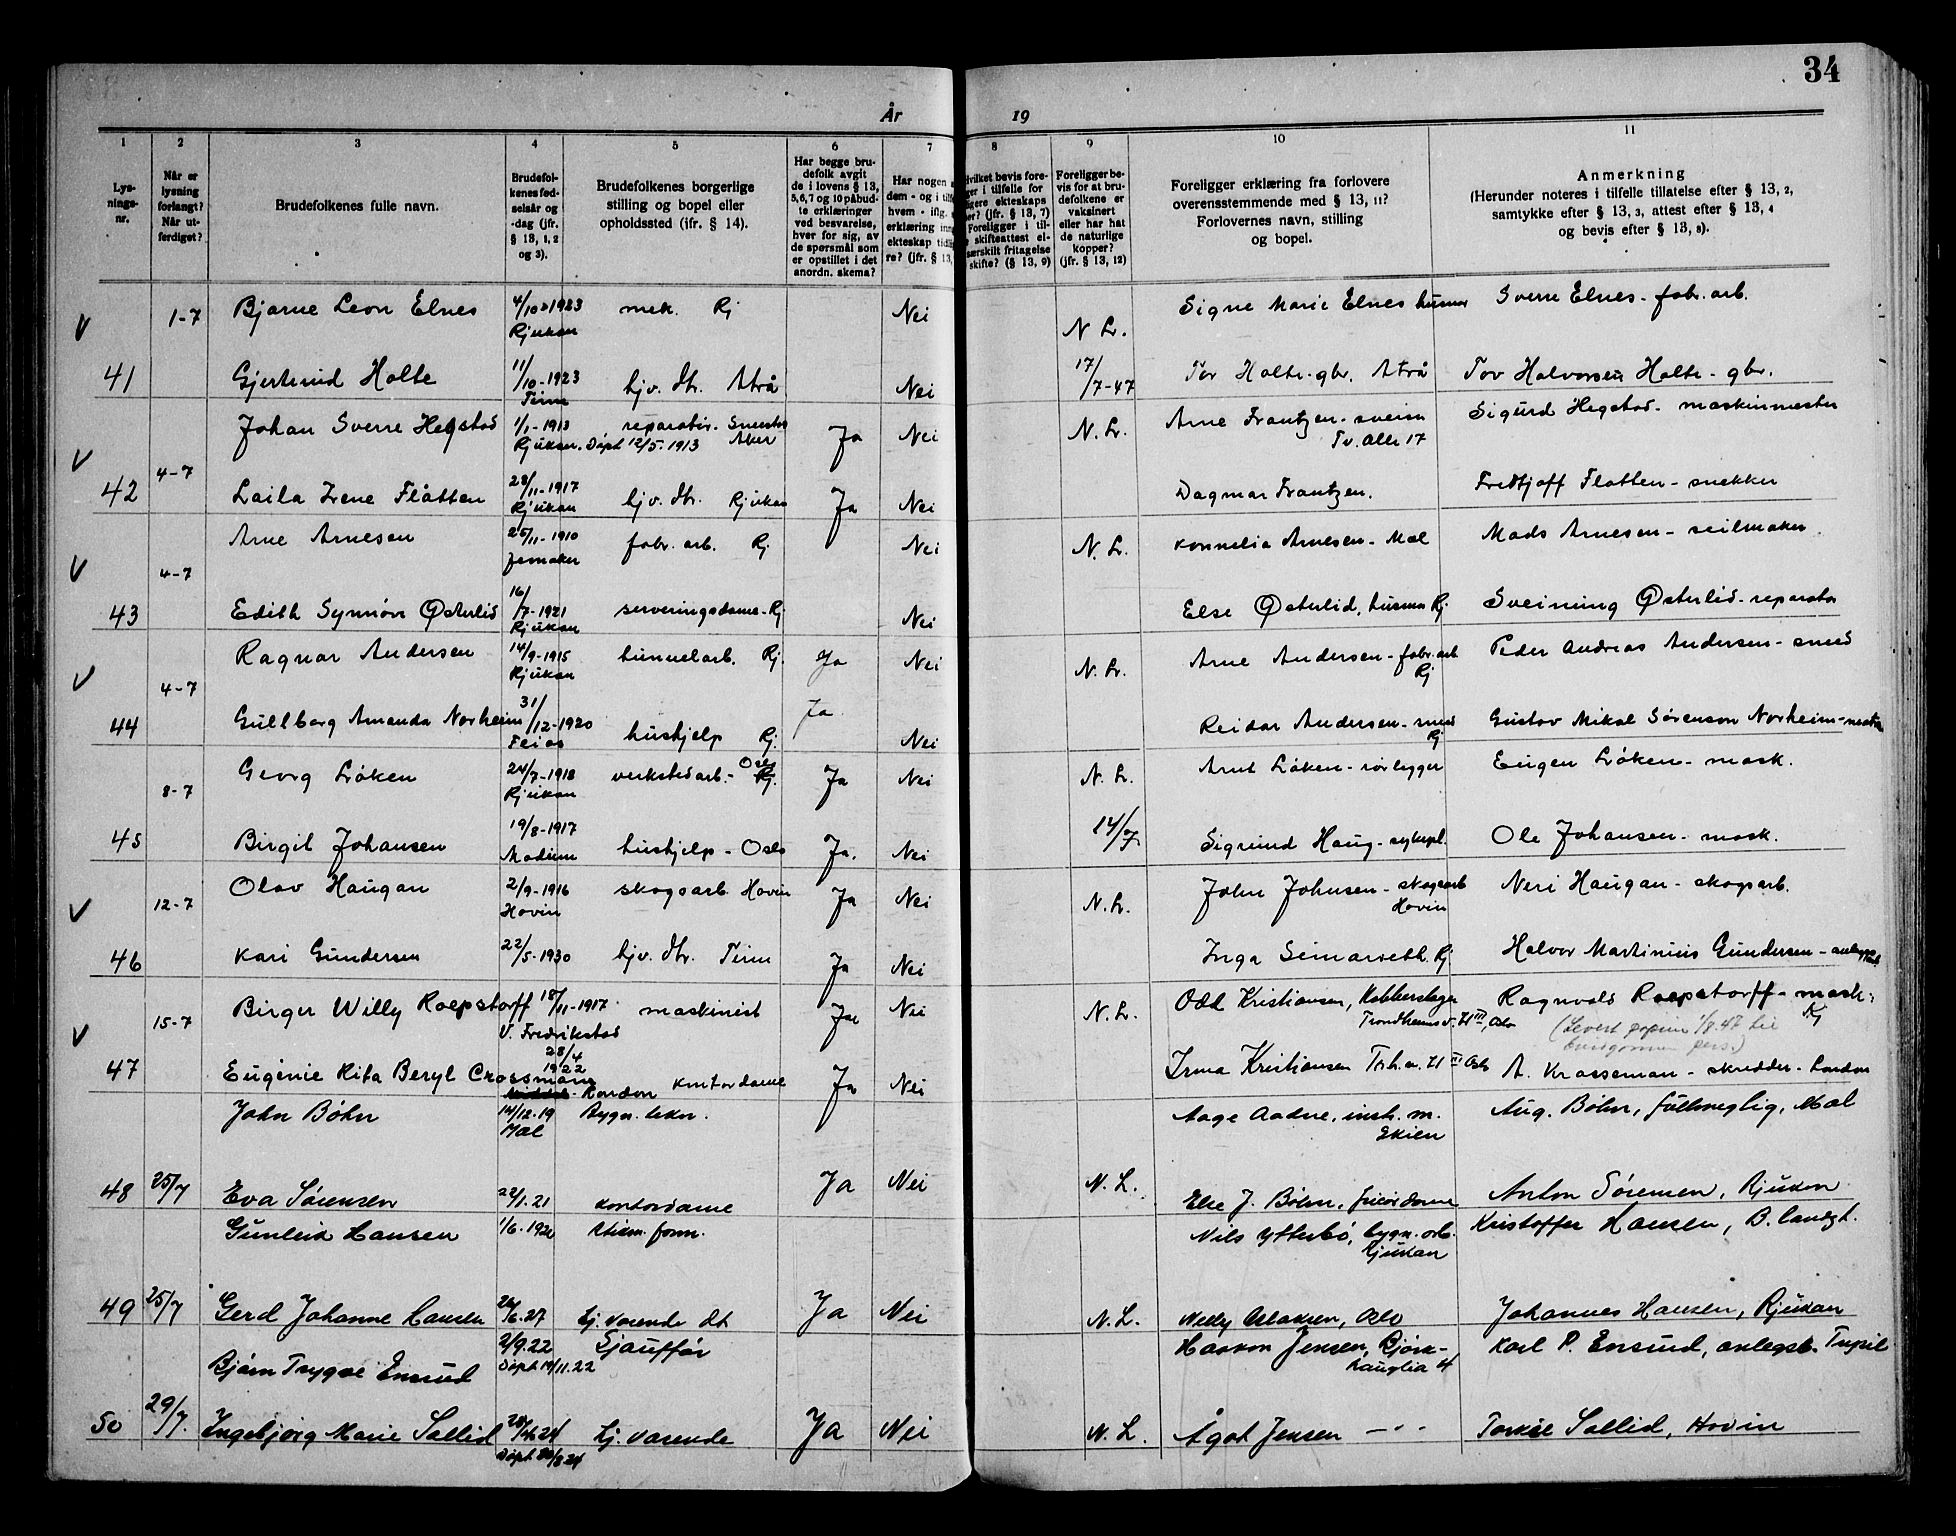 34
År 19
1 2 3 4 5 6 7 8 9 10 11
Lys-
nings-
nr.
Når er
lysning
forlangt?
Når ut-
ferdiget?
Brudefolkenes fulle navn.
Brudefol-
kenes fød-
selsår og
-dag (jfr.
§ 13, 1, 2
og 3).
Brudefolkenes borgerlige
stilling og bopel eller
opholdssted (jfr. § 14).
Har begge bru-
defolk avgit
de i lovens § 13,
5,6,7 og 10 påbud-
te erklæringer
ved besvarelse,
hver for sig, av
de spørsmål som
er opstillet i det
anordn. skema?
Har nogen
dem - og i tilf
hvem - iflg.
erklæring inn
ekteskap tidli
re? (jfr. § 13,
Hvilket bevis fore-
ger i tilfelle for
ligere ekteskaps
er? (jfr. § 13, 7)
Foreligger i til-
skifteattest el-
særskilt fritagelse
skifte? (§ 13, 9)
Foreligger be-
vis for at bru-
defolkene er
vaksinert
eller har hat
de naturlige
kopper?
(jfr. § 13, 12)
Foreligger erklæring fra forlovere
overensstemmende med § 13, 11?
Forlovernes navn, stilling
og bopel.
Anmerkning
(Herunder noteres i tilfelle tillatelse efter § 13, 2,
samtykke efter § 13, 3, attest efter § 13, 4
og bevis efter § 13, 8).
V 1-7 Bjarne Leon Elnes 4/10-1923 mek. Rj Nei N L. Signe Marie Elnes husmor Sverre Elnes - fabr. arb.
Rjukan
41 Gjertrud Holte 11/10-1923 hjv. dtr. Atrå Nei 17/7-47 Tov Holte - gbr. Atrå Tov Halvorsen Holte - gbr.
Tinn
Johan Sverre Hegstad 1/1-1913 reparatør. Ja Nei N. L. Arne Frantzen - sveiser Sigurd Hegstad - maskinmester
Rjukan. Døpt 12/5.1913 Aker Tv. Alle 17
V 4-7
42 Laila Irene Flåtten 28/11-1917 hjv. dtr. Rjukan Ja Nei Dagmar Frantzen. Fredtjoff Flatten - snekker
Rjukan
Arne Arnesen 25/11-1910 fabr. arb. Rj Nei N. L. Kornelia Arnesen - Mæl Mads Arnesen - seilmaker
V 4-7
43 Edith Synnöv Østerlid 16/7-1921 serveringsdame - Rj Nei Else Østerlid, husmor Rj. Sveinung Østerlid - reparatør
Rjukan
Ragnar Andersen 14/9-1915 tunnelarb. Rj. Ja Nei N. L. Arne Andersen - fabr. arb Peder Andreas Andersen - smed
Rjukan Rj
V 4-7
44 Gullborg Amanda Norheim 31/12-1920 hushjelp Rj. Ja Nei Reidar Andersen - smed Gustav Mikal Sørenson Norheim -
Feios Rj
Georg Løken 24/7-1918 verkstedarb. - Oslo Rj. Ja Nei N. L. Arnt Løken - rørlegger Eugen Løken - mask.
8-7 Rjukan
45 Birgit Johansen 19/8-1917 hushjelp - Oslo Ja. Nei 14/7 Sigrund Haug - sykepl. Ole Johansen - mask.
Modum
Olav Haugan 2/9-1916 skogsarb. Hovin Ja Nei N. L. John Johnsen - skogsarb Neri Haugan - skogsarb.
V 12-7 Hovin Hovin
46 Kari Gundersen 22/5-1930 hjv. dtr. Tinn Ja Nei Inga Rj Halvor Martinius Gundersen -
Birger Willy Roepstorff 18/11-1917. maskinist Ja Nei N. L. Odd Kristiansen, Kobberslager Ragnvald Roepstorff - mask.
V 15-7 V. Fredrikstad Trondheimsv. Oslo Rj
(Levert papirer 1/8.47 til
brudgommen pers.)
47 Eugénie Rita Beryl Crossmann 28/4 1922 London kontordame Ja Nei Irma Kristiansen Oslo A. Krosseman - skredder - London
John Bøhn 14/12.19 Bygn. tekn. Aage Aadne, instr. m. Aug. Bøhn, fullmegtig, Mæl
Mæl Skien
48 25/7 Eva Sørensen 22/1.21 kontordame Ja Nei N. L. Else J. Bøhn, frisørdame Anton Sørensen, Rjukan
Gunleik Hansen 1/6.1920 form. Nils Ytterbø, bygn. arb. Kristoffer Hansen, B.
Rjukan
49 25/7 Gerd Johanne Hansen 6.27 hj. værende dt Ja Nei N. L. Nelly Aslaksen, Oslo Johannes Hansen, Rjukan
2/9.22 Sjauffør Haakon Jensen, Bjørk- Karl P. Ensrud, anlegsb. Trysil
Bjørn Trygve Ensrud Døpt 19/11.22 hauglia 4
50 29/7. Ingebjørg Marie Sollid 4.24 hj. værende Ja Nei N. L. Ågot Jensen - " - Torkil Sollid, Hovin
Døpt